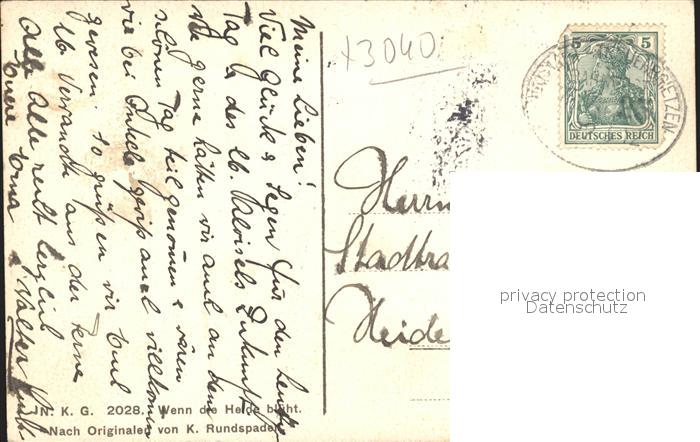 Meine Lieben!
Viel Glück & Segen für den heutg
Tag & des lb. Zukunft
wie gerne hätten wir auch an dem
schönen Tag teilgenommen & wären
wir bei Onkels gewiß auch willkommen
gewesen. So grüßen wir Euch
lb. Verwandte aus der Ferne
Alle Alle recht herzlich
Eure Erna & Walter
JN. K. G. 2028. Wenn die Heide blüht.
Nach Originalen von K. Rundspaden
x3040
5 5
DEUTSCHES REICH
Herrn
Stadtra
Heide
privacy protection
Datenschutz